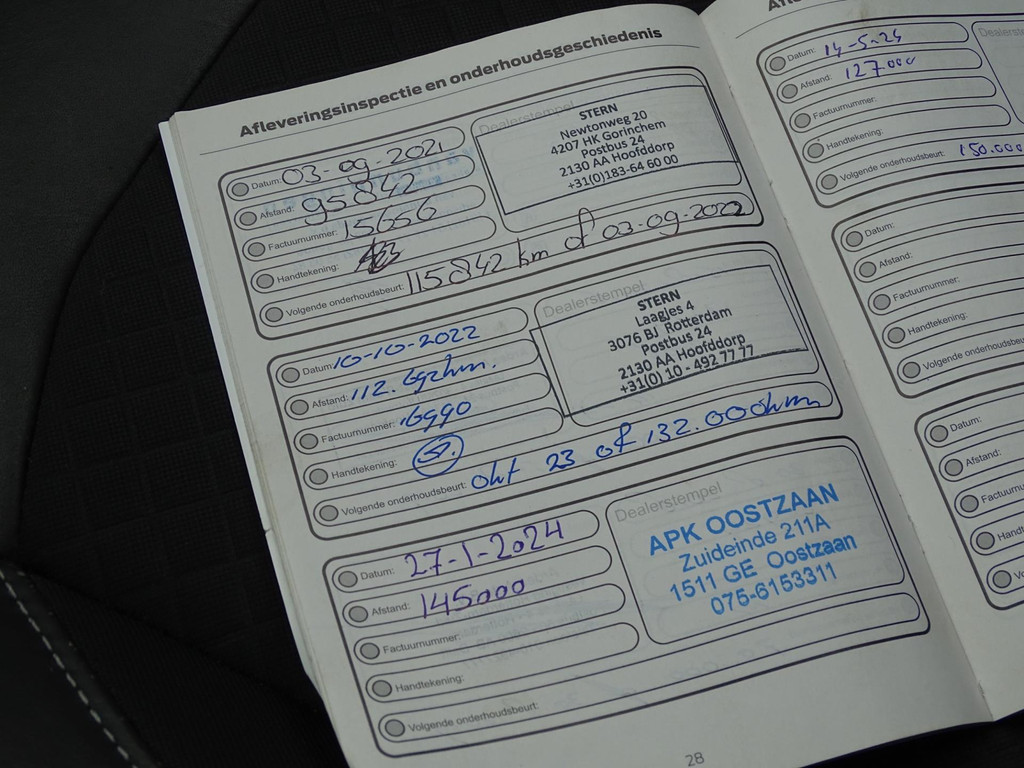 Afleveringsinspectie en onderhoudsgeschiedenis
Datum: 03-09-2021
Afstand: 95842
Factuurnummer: 15656
Handtekening:
Volgende onderhoudsbeurt: 115842 km of 03-09-2022
Dealerstempel
STERN
Newtonweg 20
4207 HK Gorinchem
Postbus 24
2130 AA Hoofddorp
+31(0)183-64 60 00
Datum: 10-10-2022
Afstand: 112.692km.
Factuurnummer: 16990
Handtekening:
Volgende onderhoudsbeurt: okt 23 of 132.000km
Dealerstempel
STERN
Laagjes 4
3076 BJ Rotterdam
Postbus 24
2130 AA Hoofddorp
+31(0) 10 - 492 77 77
Datum: 27-1-2024
Afstand: 145000
Factuurnummer:
Handtekening:
Volgende onderhoudsbeurt:
Dealerstempel
APK OOSTZAAN
Zuideinde 211A
1511 GE Oostzaan
075-6153311
28
Datum: 14-5-24
Afstand: 127000
Factuurnummer:
Handtekening:
Volgende onderhoudsbeurt: 150.000
Datum:
Afstand:
Factuurnummer:
Handtekening:
Volgende onderhoudsbeu
Datum:
Afstand:
Factuurnu
Handt
Vo